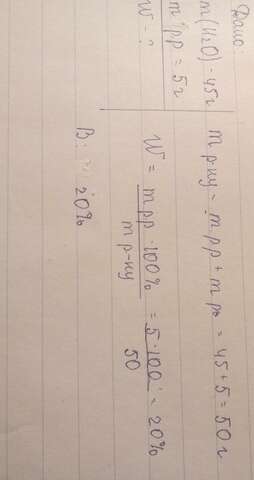 Дано:
m(H2O) - 45г
m рр = 5г
W - ?
m р-ну = m рр + m рь = 45 + 5 = 50 г
W = m рр · 100% / m р-ну = 5 · 100 / 50 = 20%
В: 20%